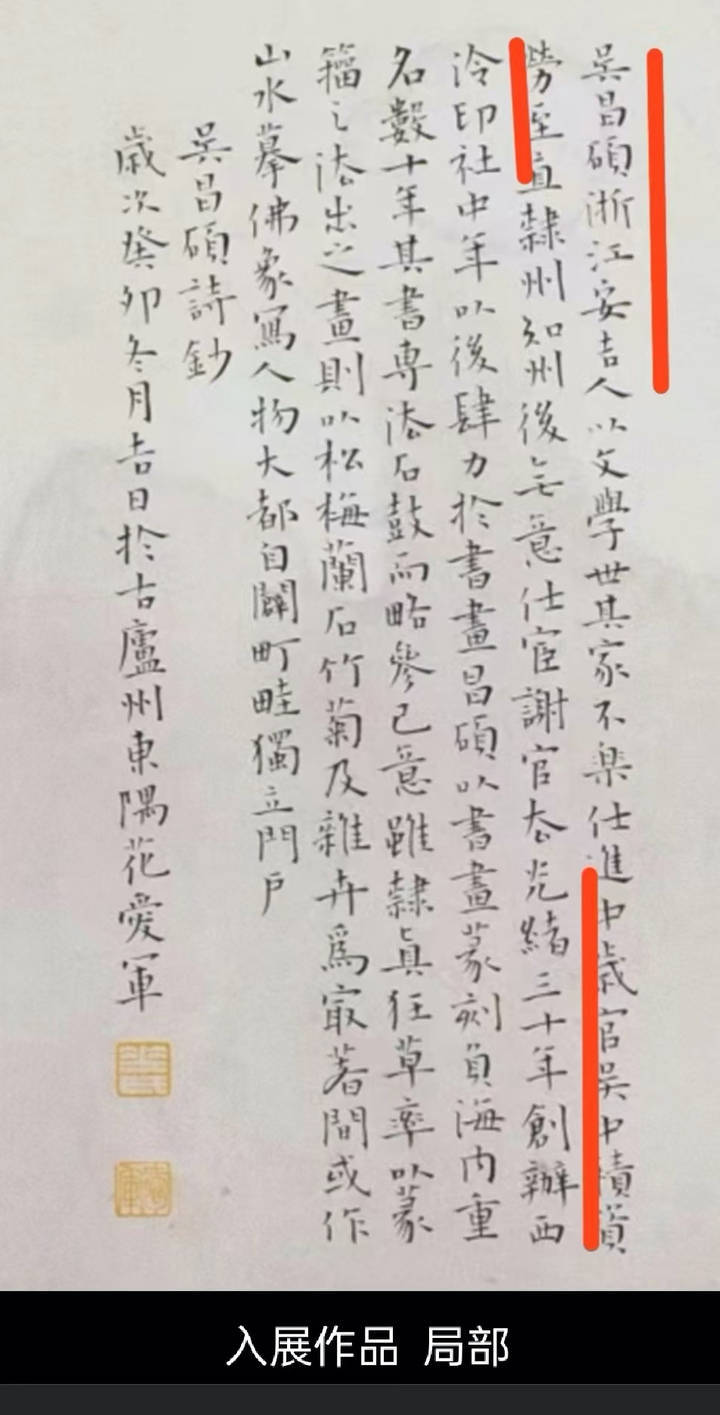 吳昌碩浙江安吉人以文學世其家不樂仕進中歲官吳中積資
勞至直隸州知州後無意仕宦謝官去光緒三十年創辦西
泠印社中年以後肆力於書畫昌碩以書畫篆刻負海內重
名數十年其書專法石鼓而略參己意雖隸真狂草率以篆
籀之法出之畫則以松梅蘭石竹菊及雜卉為最著間或作
山水摹佛象寫人物大都自闢町畦獨立門戶
吳昌碩詩鈔
歲次癸卯冬月吉日於古廬州東隅花愛軍
入展作品 局部